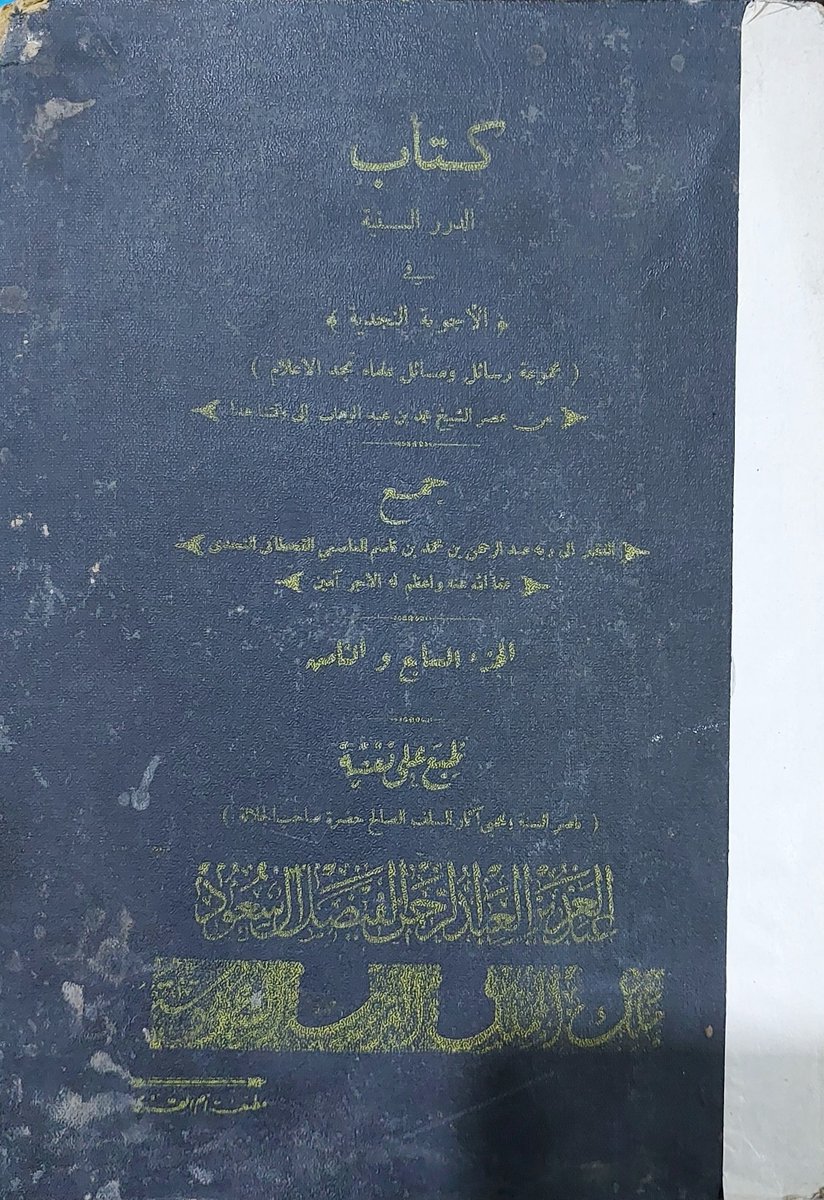 كتاب
الدرر السنية
في
﴿ الأجوبة النجدية ﴾
( مجموعة رسائل ومسائل علماء نجد الاعلام )
من عصر الشيخ محمد بن عبد الوهاب إلى وقتنا هذا
جمع
الفقير الى ربه عبد الرحمن بن محمد بن قاسم العاصمي القحطاني النجدي
عفا الله عنه واعظم له الأجر آمين
الجزء السابع و الثامن
طبع على نفقة
( ناصر السنة ومحيي آثار السلف الصالح حضرة صاحب الجلالة )
عبد العزيز بن عبد الرحمن الفيصل آل سعود
مطبعة ام القرى